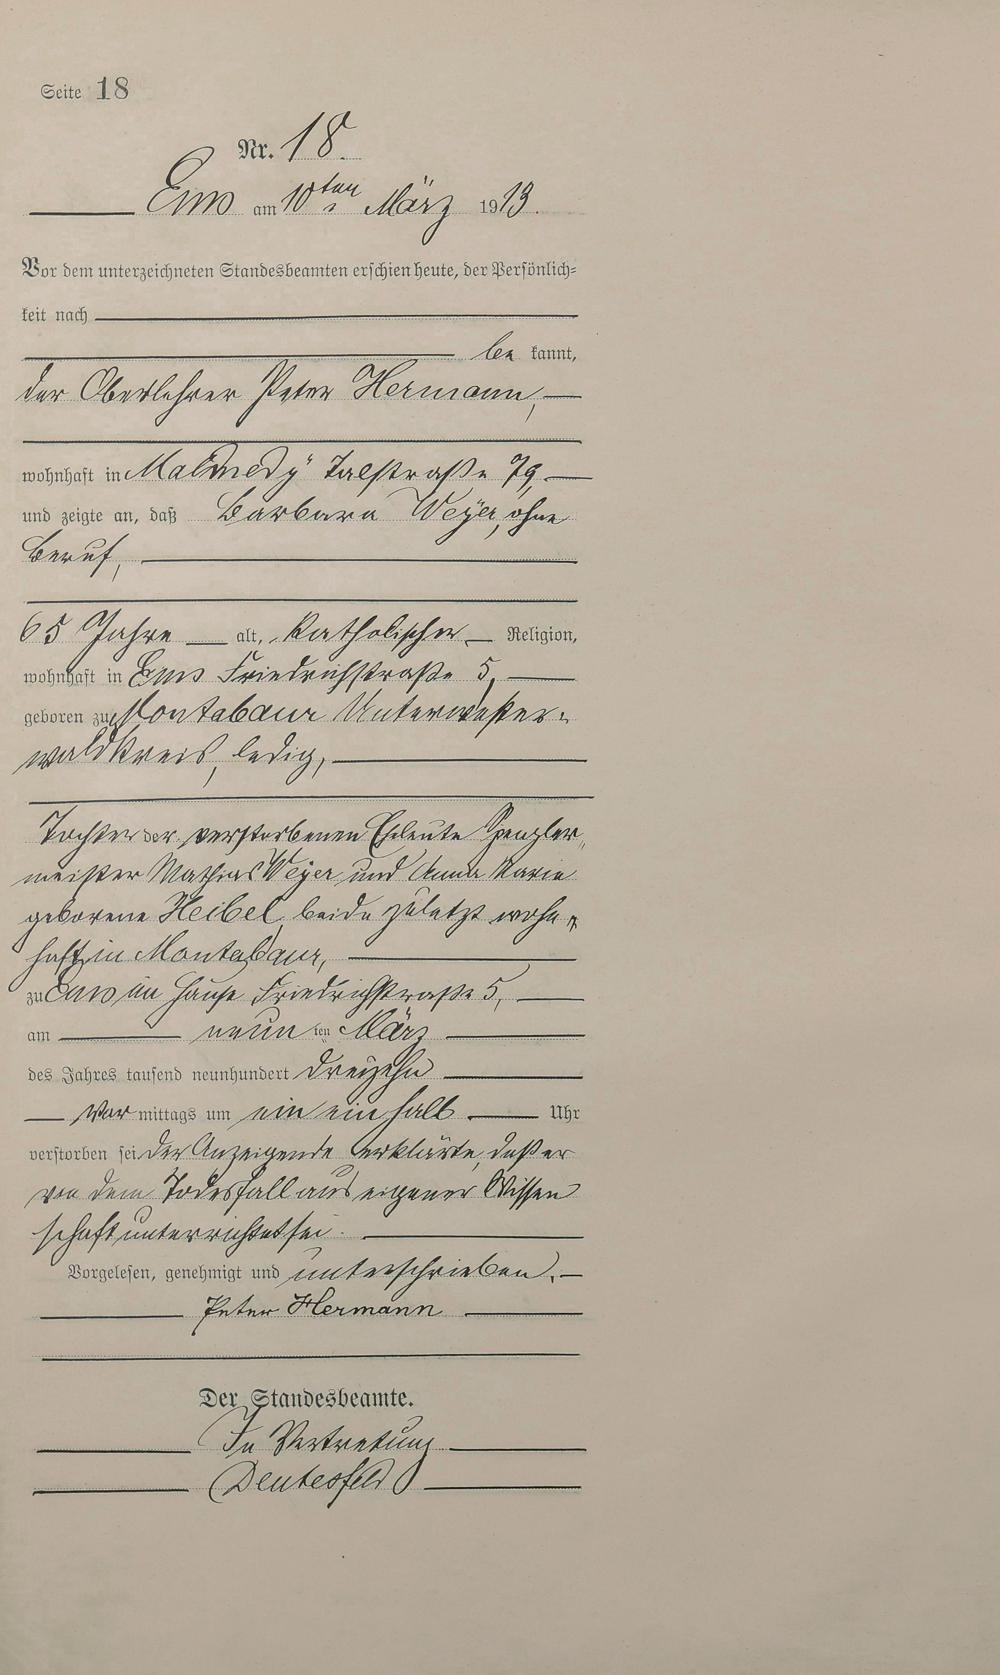 Seite 18
Nr. 18.
Ems am 10ten März 1913.
Vor dem unterzeichneten Standesbeamten erschien heute, der Persönlich-
keit nach
be kannt,
der Oberlehrer Peter Hermann,
wohnhaft in Malmedy Talstraße 79,
und zeigte an, daß Barbara Weyer, ohne
Beruf,
65 Jahre alt, katholischer Religion,
wohnhaft in Ems Friedrichstraße 5,
geboren zu Montabaur Unterwester-
waldkreis, ledig,
Tochter der verstorbenen Eheleute Spengler-
meister Mathias Weyer und Anna Marie
geborene Heibel, beide zuletzt wohn-
haft in Montabaur,
zu Ems im Hause Friedrichstraße 5,
am neun ten März
des Jahres tausend neunhundert dreizehn
Vor mittags um ein ein halb Uhr
verstorben sei. Der Anzeigende erklärte, daß er
von dem Todesfall aus eigener Wissen
schaft unterrichtet sei.
Vorgelesen, genehmigt und unterschrieben.
Peter Hermann
Der Standesbeamte.
In Vertretung